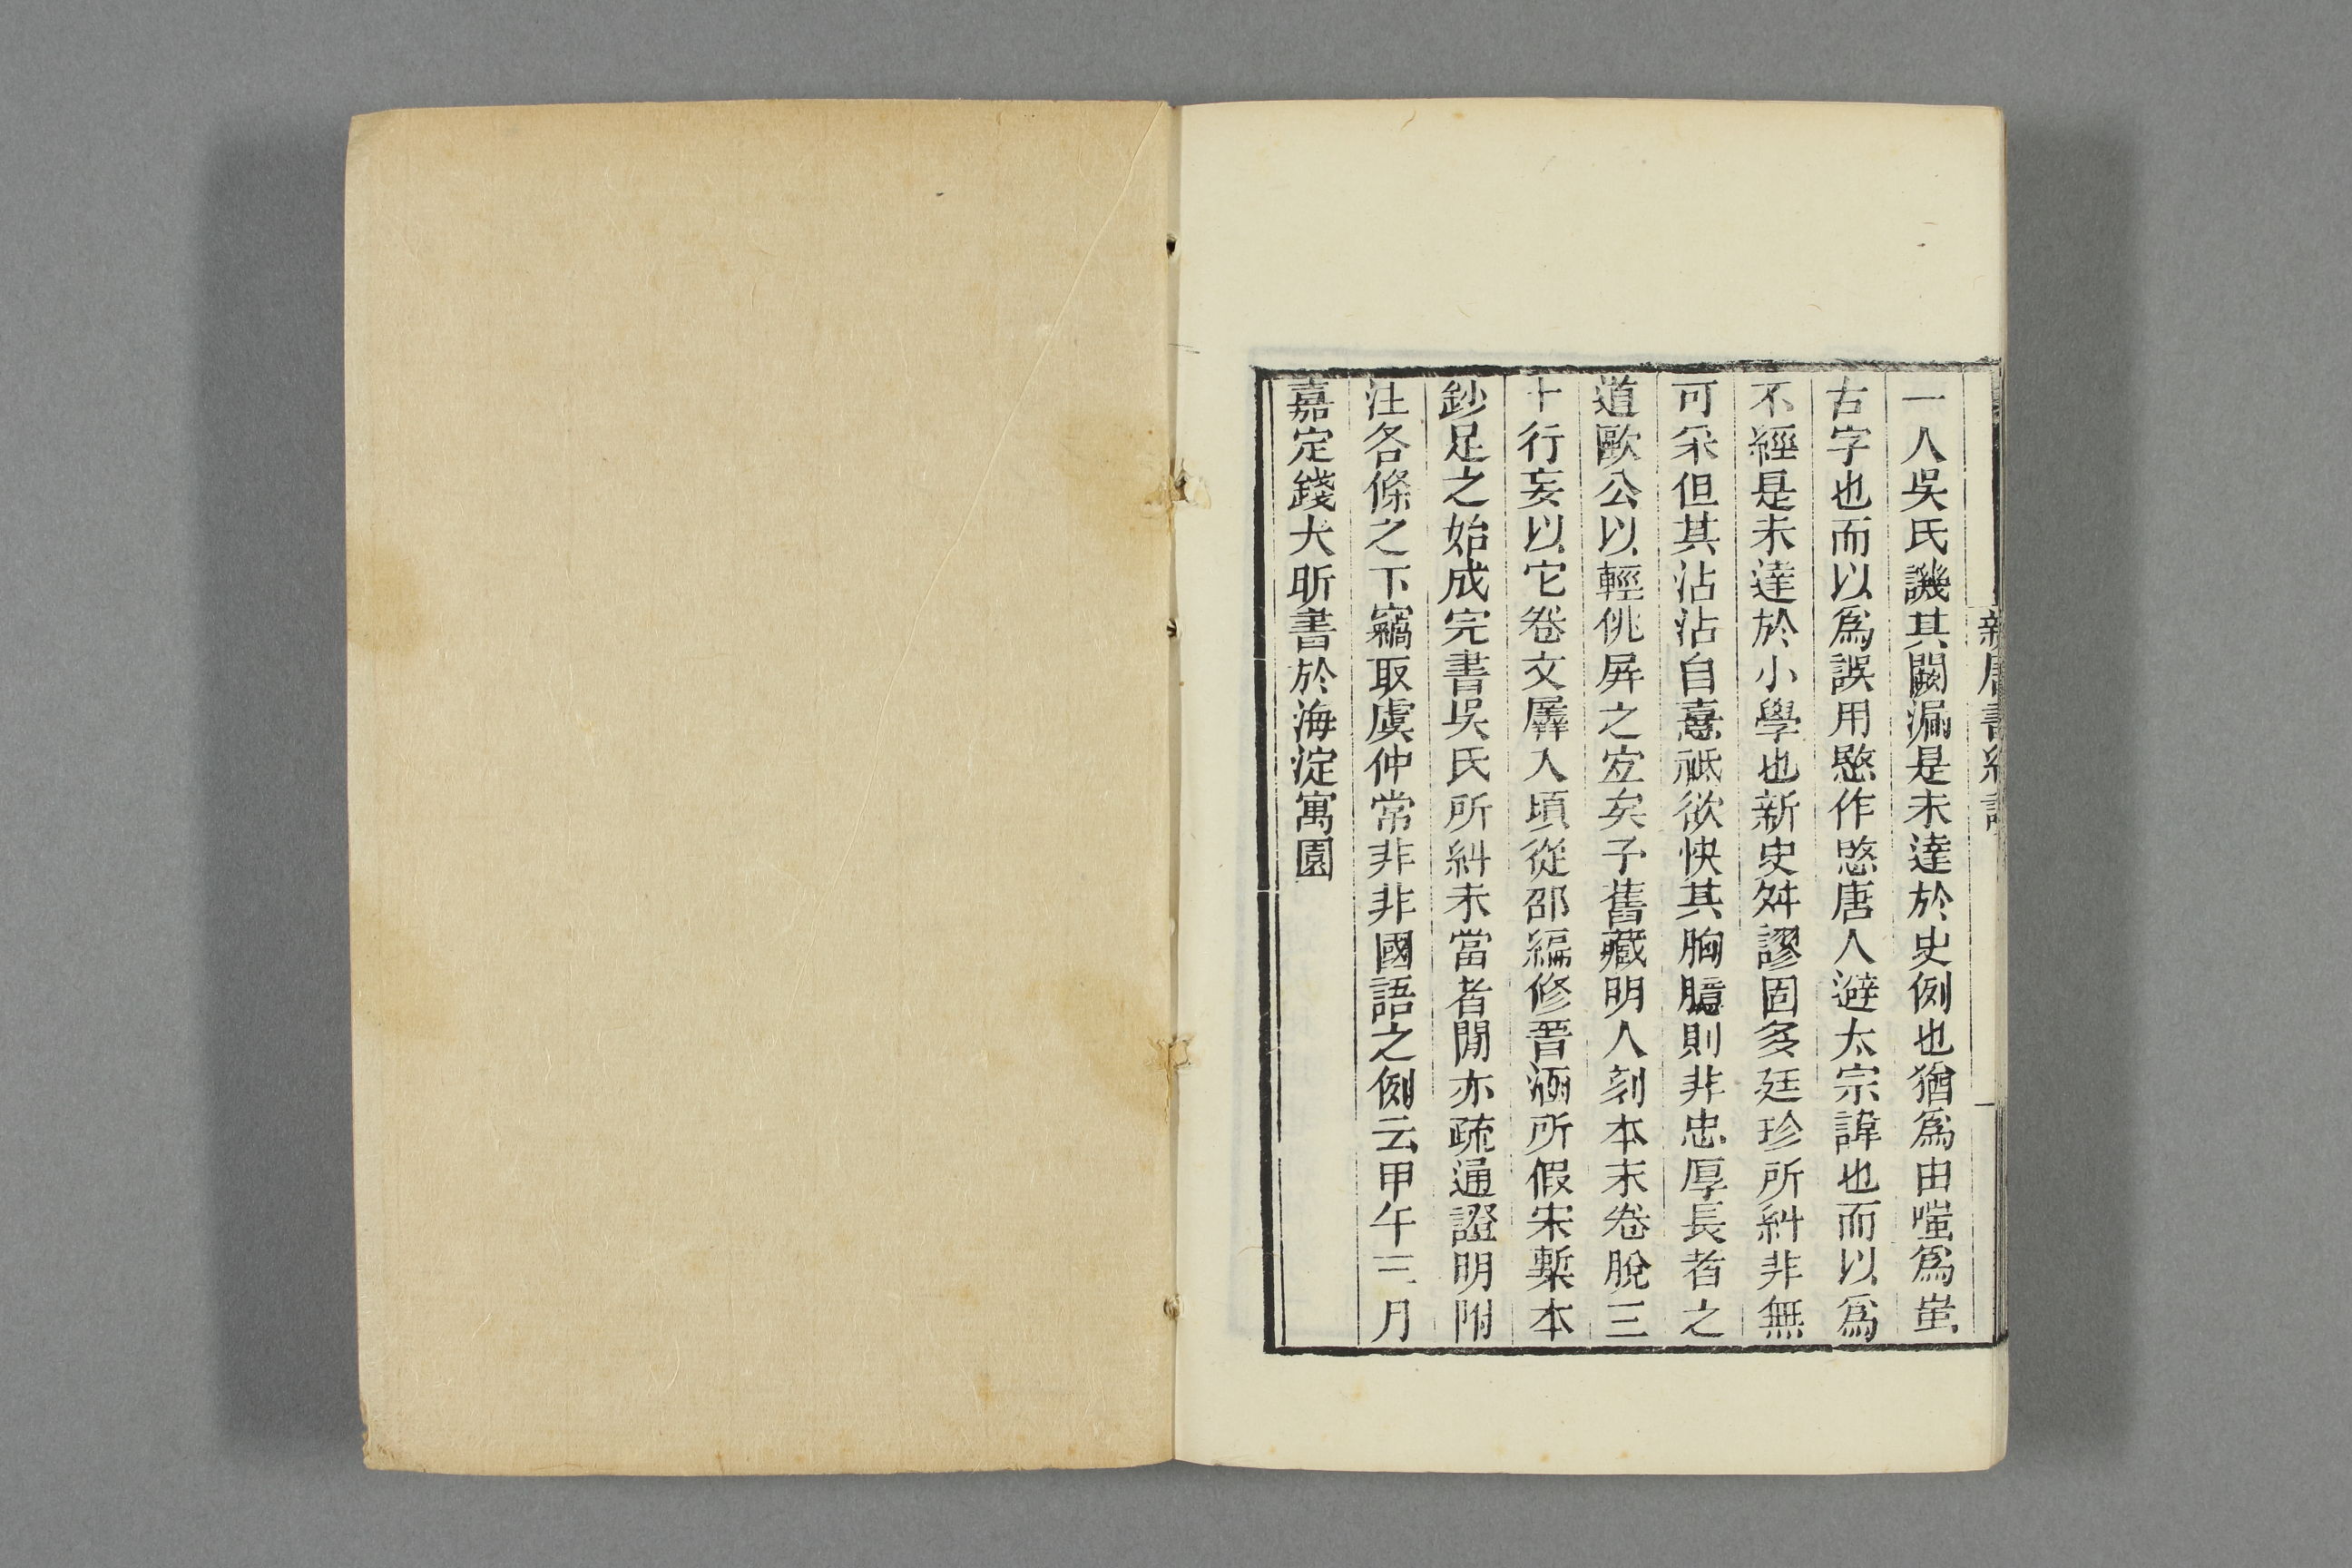 新唐書糾謬
一
一人吳氏譏其闕漏是未達於史例也猶爲由嗤爲蚩
古字也而以爲誤用愍作愍唐人避太宗諱也而以爲
不經是未達於小學也新史舛謬固多廷珍所糾非無
可采但其沾沾自憙祗欲快其胸臆則非忠厚長者之
道歐公以輕佻屏之宐矣予舊藏明人刻本末卷脫三
十行妄以它卷文羼入頃從邵編修晋涵所假宋槧本
鈔足之始成完書吳氏所糾未當者閒亦疏通證明附
注各條之下竊取虞仲常非非國語之例云甲午三月
嘉定錢大昕書於海淀寓園